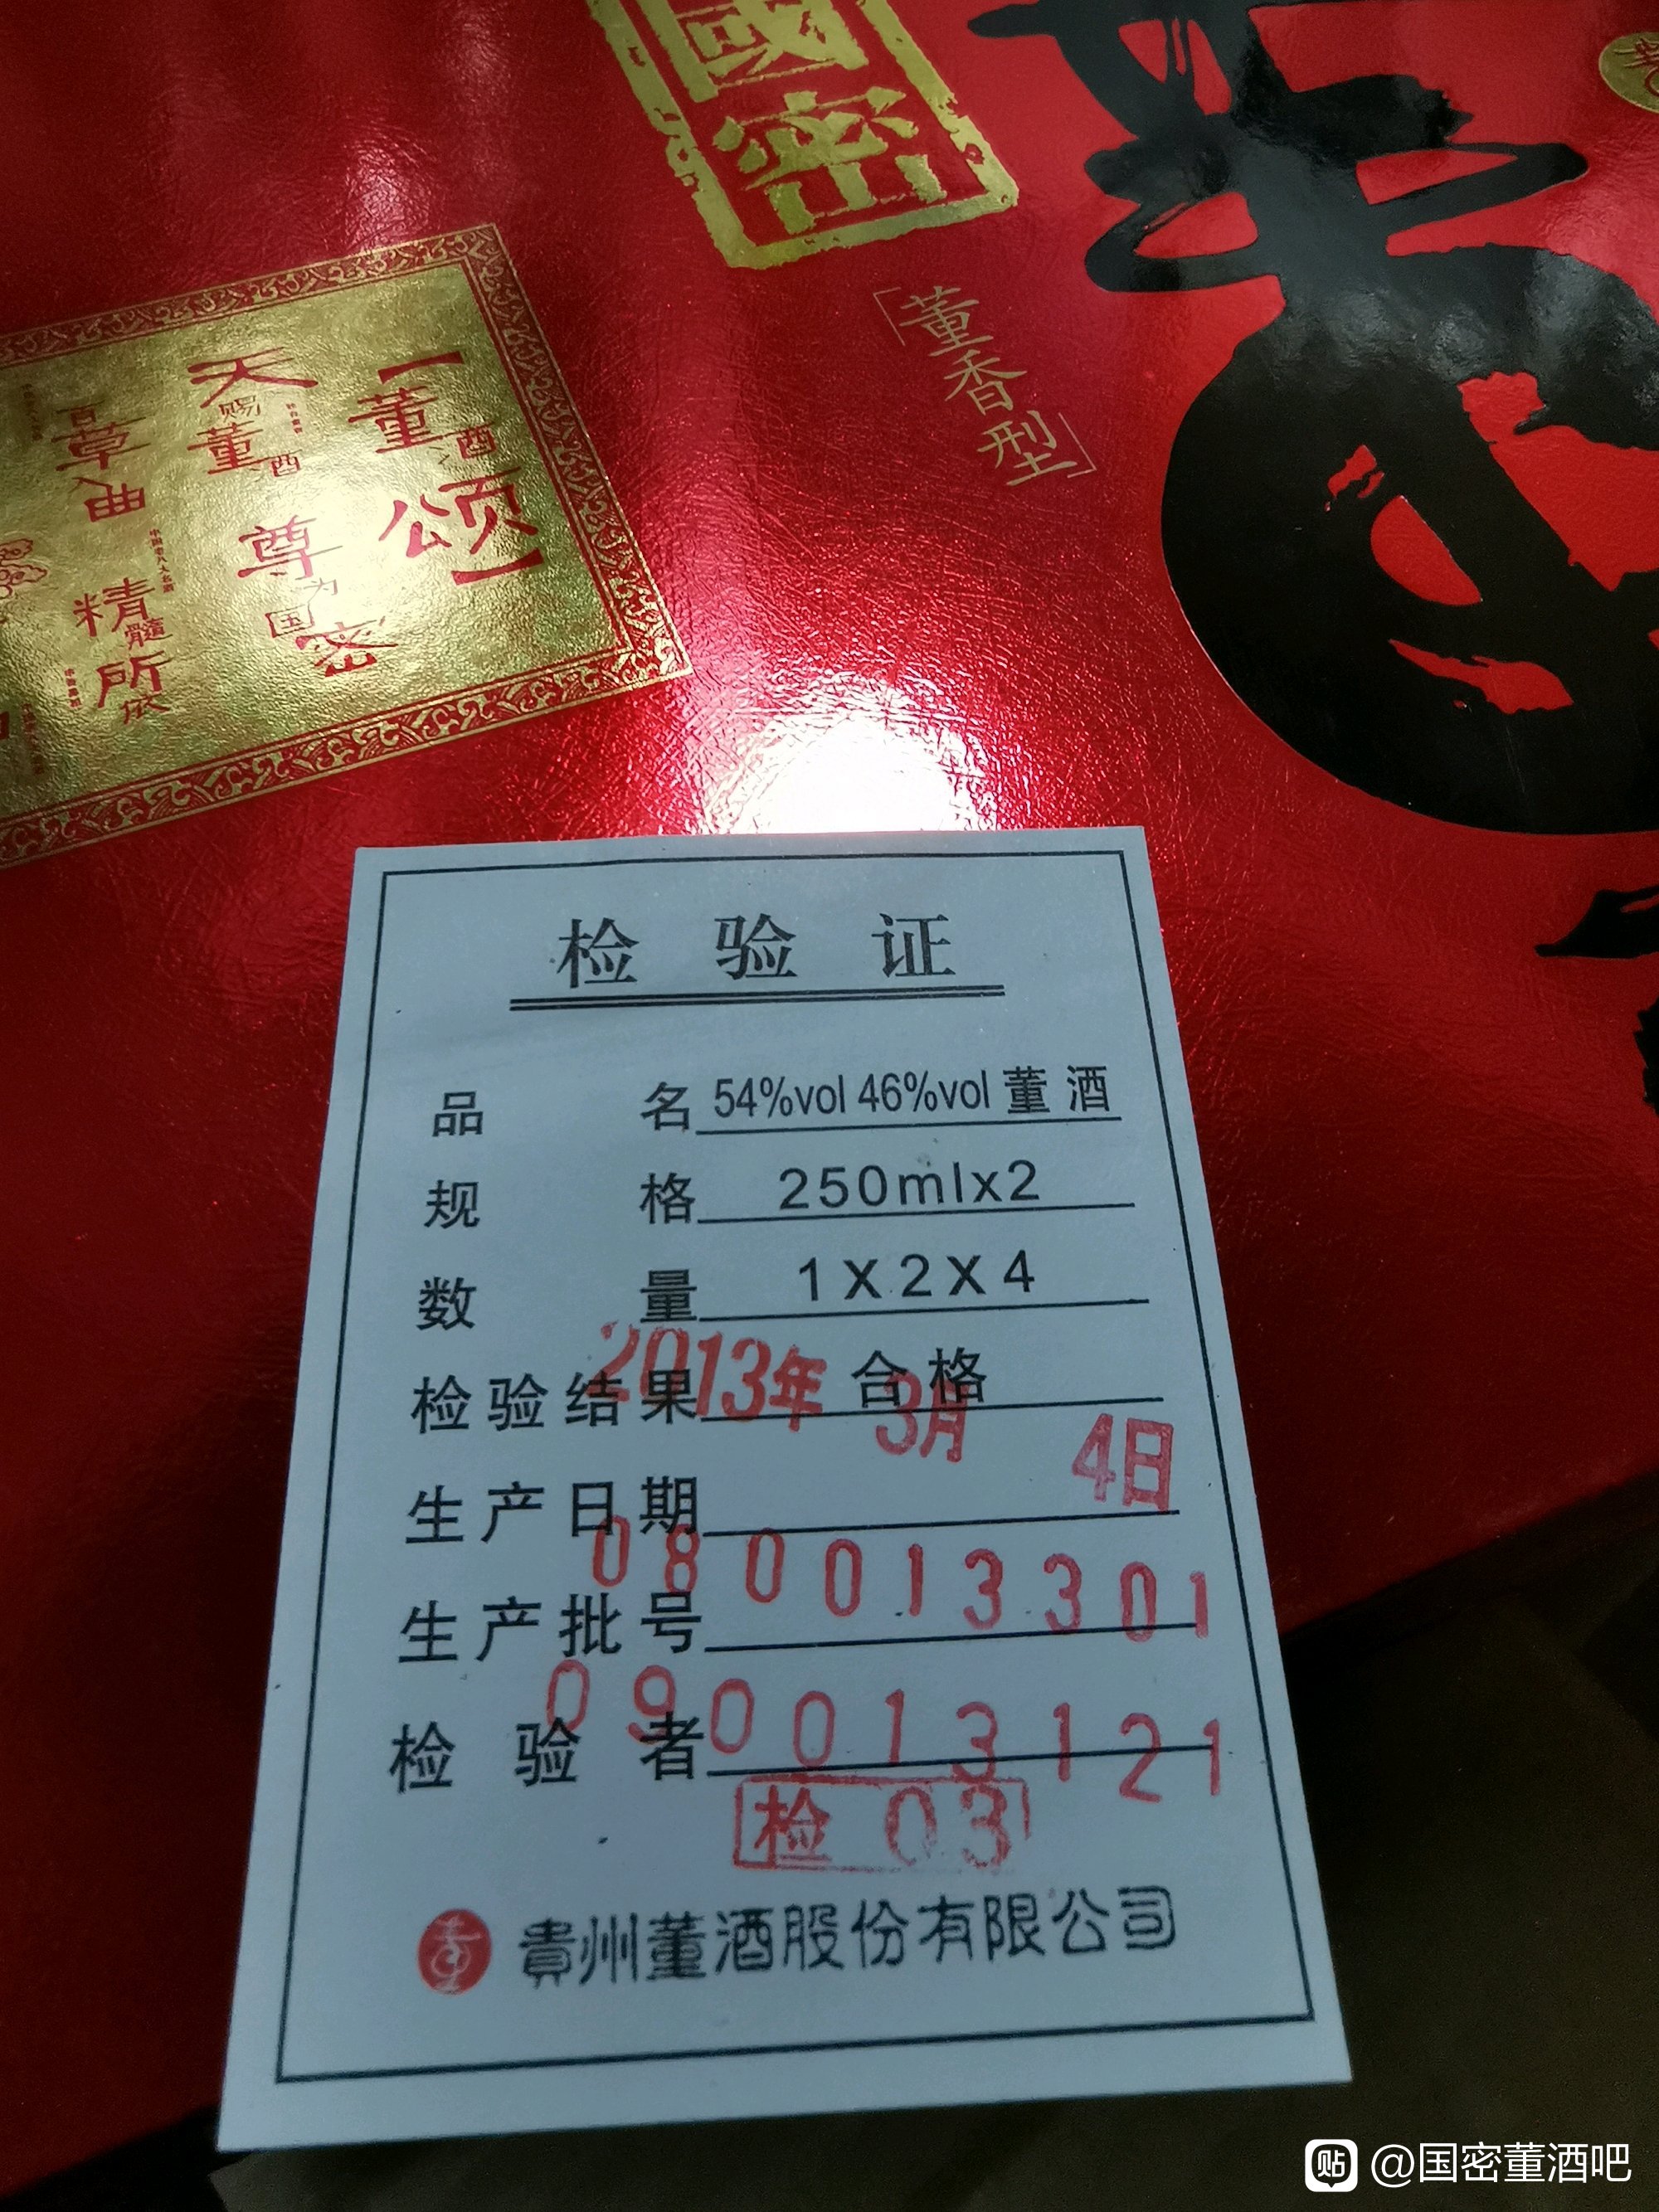 國密
「董香型」
【董酒颂】
天赐董酒 尊为国密
百草入曲 精髓所依
检验证
品名 54%vol 46%vol 董酒
规格 250mlx2
数量 1X2X4
检验结果 合格
2013年 3月 4日
生产日期
080013301
生产批号
090013121
检验者
检 03
董 貴州董酒股份有限公司
贴 @国密董酒吧